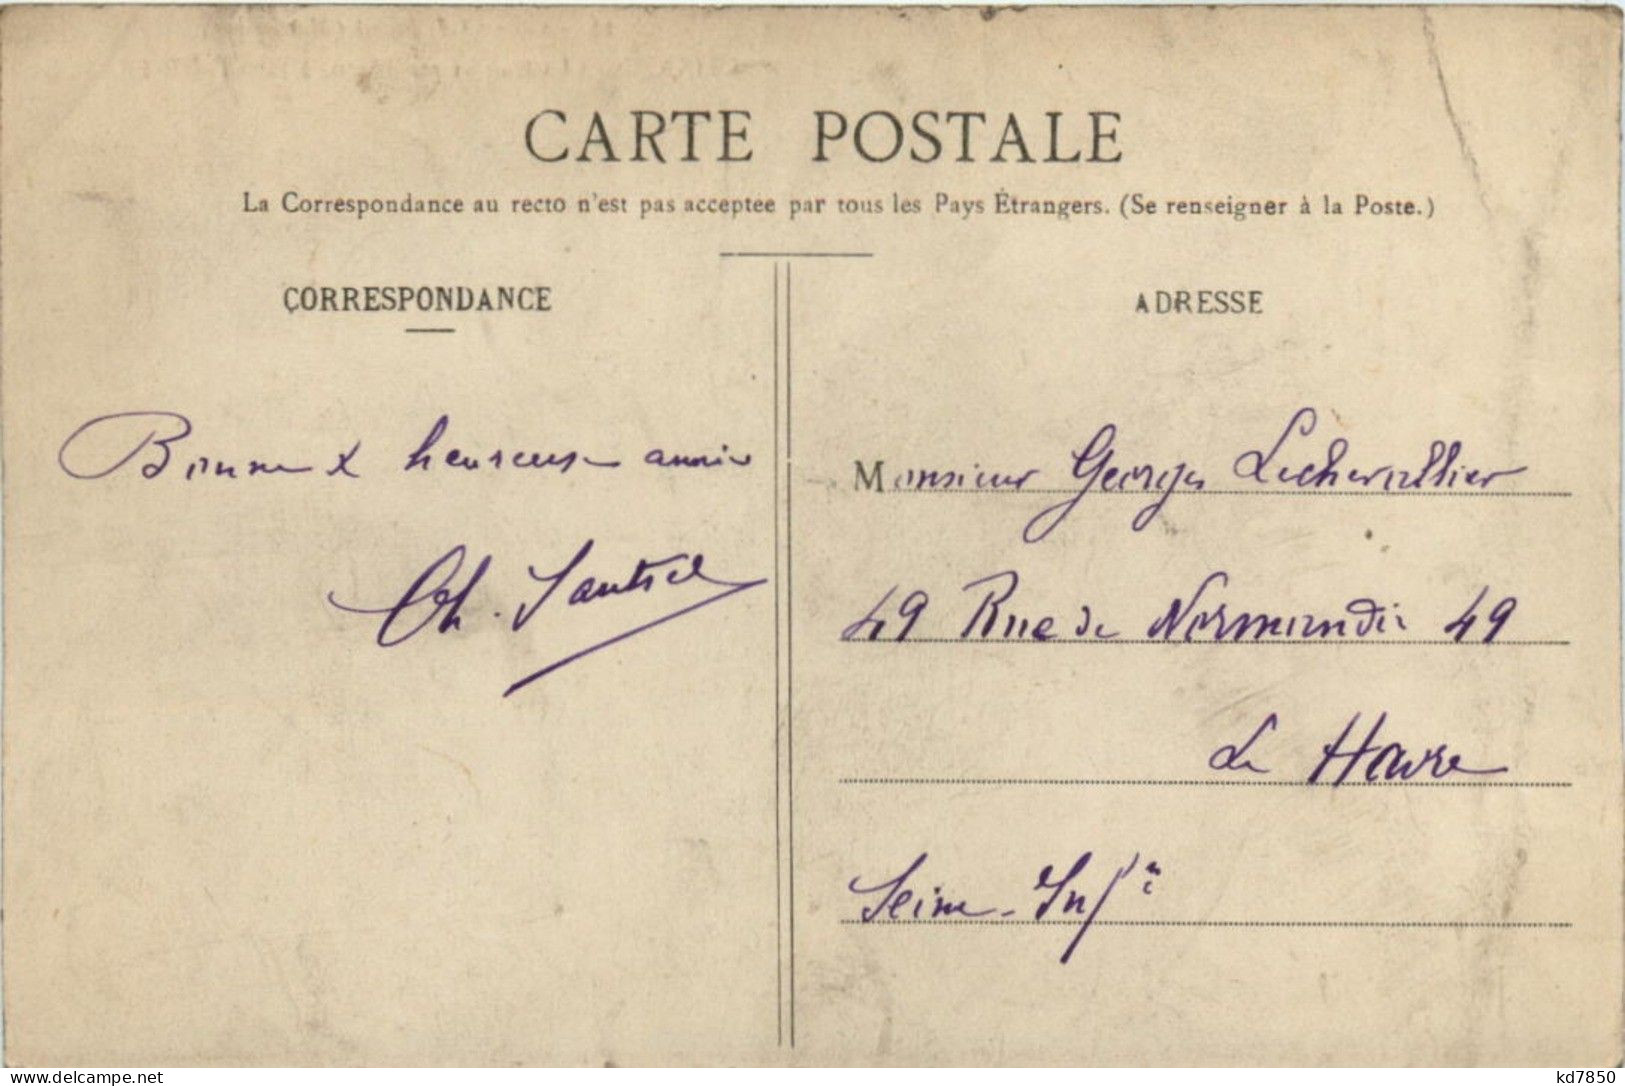 CARTE POSTALE
La Correspondance au recto n'est pas acceptée par tous les Pays Étrangers. (Se renseigner à la Poste.)
CORRESPONDANCE
Bonne & heureuse année
Ch.
ADRESSE
Monsieur Georges Lechevallier
49 Rue de Normandie 49
Le Havre
Seine-Infre
www.delcampe.net
kd7850